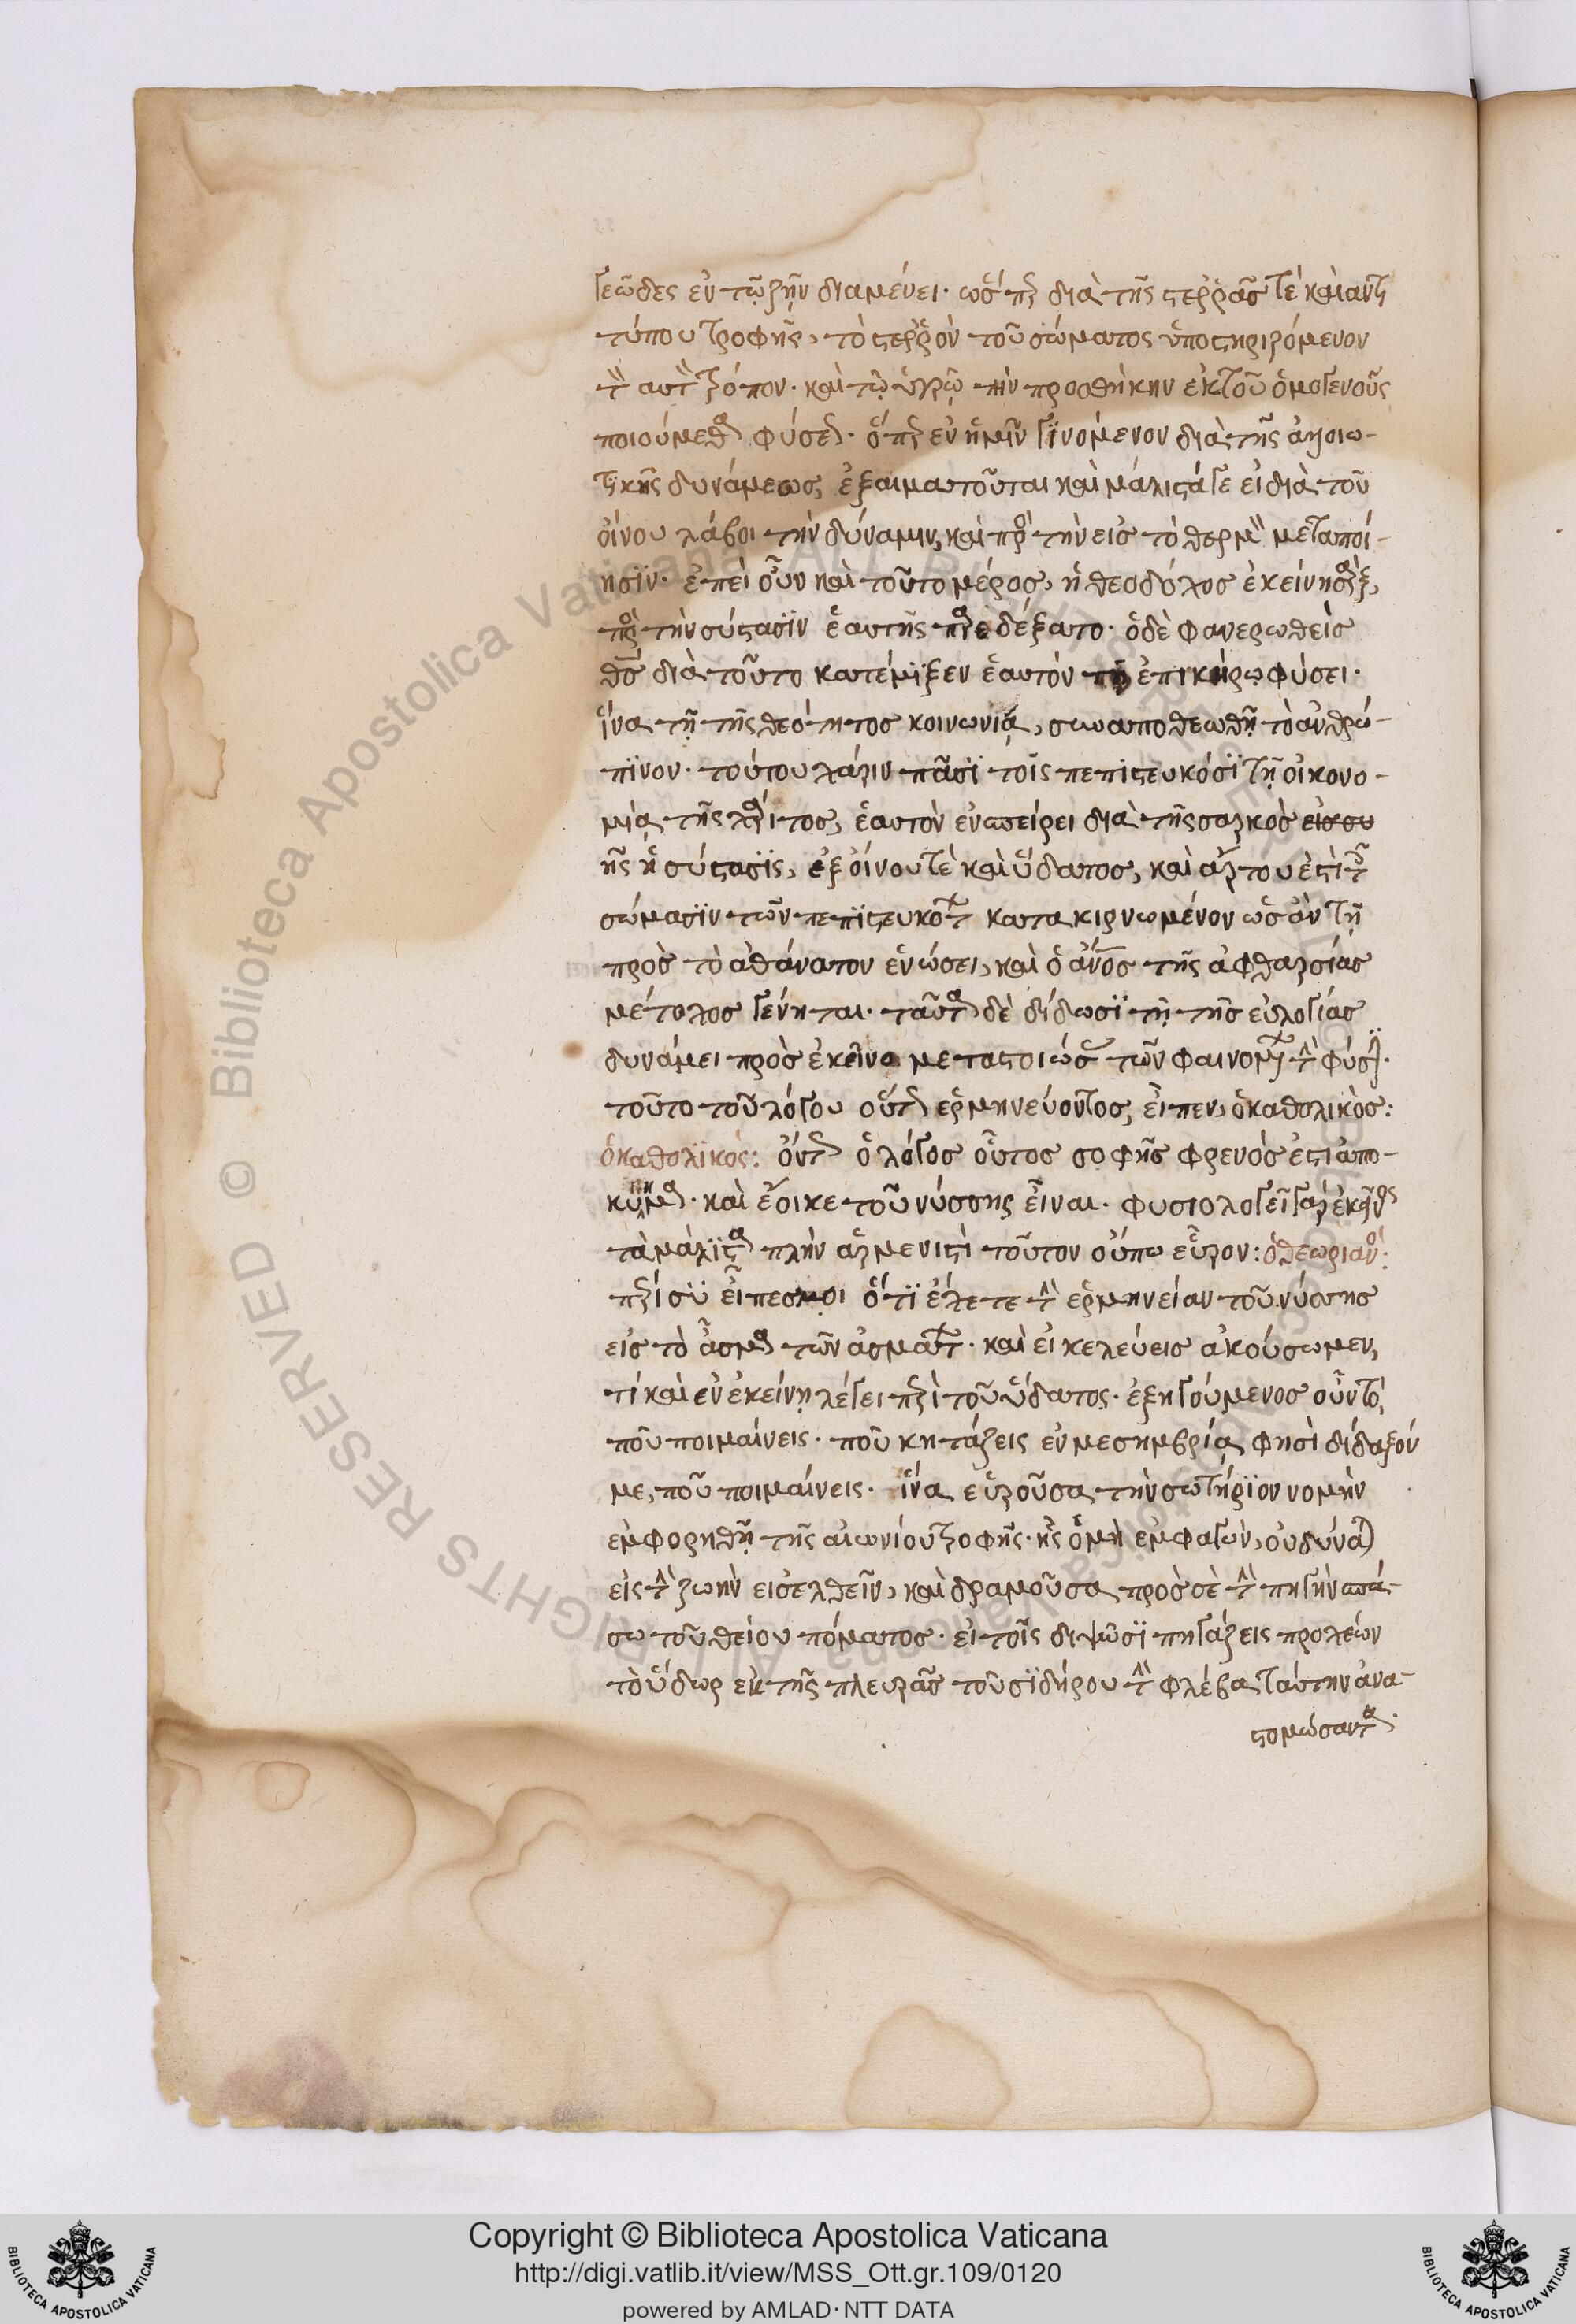 γεῶδες ἐν τῷ ζῆν διαμένει· ὥσπερ διὰ τῆς στερρᾶς τὲ καὶ ἀντι
τύπου τροφῆς, τὸ στερρὸν τοῦ σώματος ὑποστηριζόμενον
τὸν αὐτὸν τρόπον· καὶ τῷ ὑγρῷ τὴν προσθήκην ἐκ τοῦ ὁμογενοῦς
ποιούμεθα φύσεως· ὅπερ ἐν ἡμῖν γϊνόμενον διὰ τῆς ἀλλοιω-
τικῆς δυνάμεως, ἐξαιματοῦται καὶ μάλιστά γε εἰ διὰ τοῦ
οἴνου λάβοι τὴν δύναμιν, καὶ πρὸς τὴν εἰς τὸ θερμὸν μεταποί-
ησϊν· ἐπεὶ οὖν καὶ τοῦτο μέρος, ἡ θεοδόχος ἐκείνη σὰρξ,
πρὸς τὴν σύστασϊν ἑαυτῆς παρεδέξατο· ὁ δὲ φανερωθεὶς
θς διὰ τοῦτο κατέμϊξεν ἑαυτὸν τῇ ἐπικήρῳ φύσει·
ἵνα τῇ τῆς θεότητος κοινωνίᾳ, συναποθεωθῇ τὸ ἀνθρώ-
πϊνον· τούτου χάριν πᾶσϊ τοῖς πεπιστευκόσϊ τῇ οἰκονο-
μίᾳ τῆς χάριτος, ἑαυτὸν ἐνσπείρει διὰ τῆς σαρκὸς
ἧς ἡ σύστασϊς, ἐξ οἴνου τὲ καὶ ὕδατος, καὶ ἄρτου ἐστὶ τοῖς
σώμασϊν τῶν πεπϊστευκότων κατακιρνωμένον ὡς ἂν τῇ
πρὸς τὸ ἀθάνατον ἑνώσει, καὶ ὁ ἄνος τῆς ἀφθαρσίας
μέτοχος γένηται· ταῦτα δὲ δίδωσϊ τῇ τῆς εὐλογίας
δυνάμει πρὸς ἐκεῖνο μεταστοιχειώσας τῶν φαινομένων τὴν φύσϊν·
τοῦτο τοῦ λόγου οὕτως ἑρμηνεύοντος, εἶπεν, ὁ καθολικὸς:
ὁ καθολϊκὸς: ὄντως ὁ λόγος οὗτος σοφῆς φρενός ἐστι ἀπο-
κύημα· καὶ ἔοικε τοῦ νύσσης εἶναι· φυσιολογεῖ γὰρ ἐκεῖνος
τὰ μάλϊστα πλὴν ἀρμενιστὶ τοῦτον οὔπω εὗρον: ὁ θεωριανὸς:
εἶπες μοι ὅτϊ ἔχετε τὴν ἑρμηνείαν τοῦ νύσσης
εἰς τὸ ᾆσμα τῶν ᾀσμάτων· καὶ εἰ κελεύεις ἀκούσωμεν,
τί καὶ ἐν ἐκείνῃ λέγει περὶ τοῦ ὕδατος· ἐξηγούμενος οὖν τό,
ποῦ ποιμαίνεις· ποῦ κητάζεις ἐν μεσημβρίᾳ φησὶ δίδαξόν
με, ποῦ ποιμαίνεις· ἵνα εὑροῦσα τὴν σωτήρϊον νομὴν
ἐμφορηθῇ τῆς αἰωνίου τροφῆς· ἧς ὁ μὴ ἐμφαγών, οὐ δύναται
εἰς τὴν ζωὴν εἰσελθεῖν, καὶ δραμοῦσα πρὸς σὲ τὴν πηγὴν σπά-
σω τοῦ θείου πόματος· εἰ τοῖς διψῶσϊ πηγάζεις προχέων
τὸ ὕδωρ ἐκ τῆς πλευρᾶς τοῦ σϊδήρου τὴν φλέβα ταύτην ἀνα-
στομώσαντος·
Copyright © Biblioteca Apostolica Vaticana
http://digi.vatlib.it/view/MSS_Ott.gr.109/0120
powered by AMLAD·NTT DATA